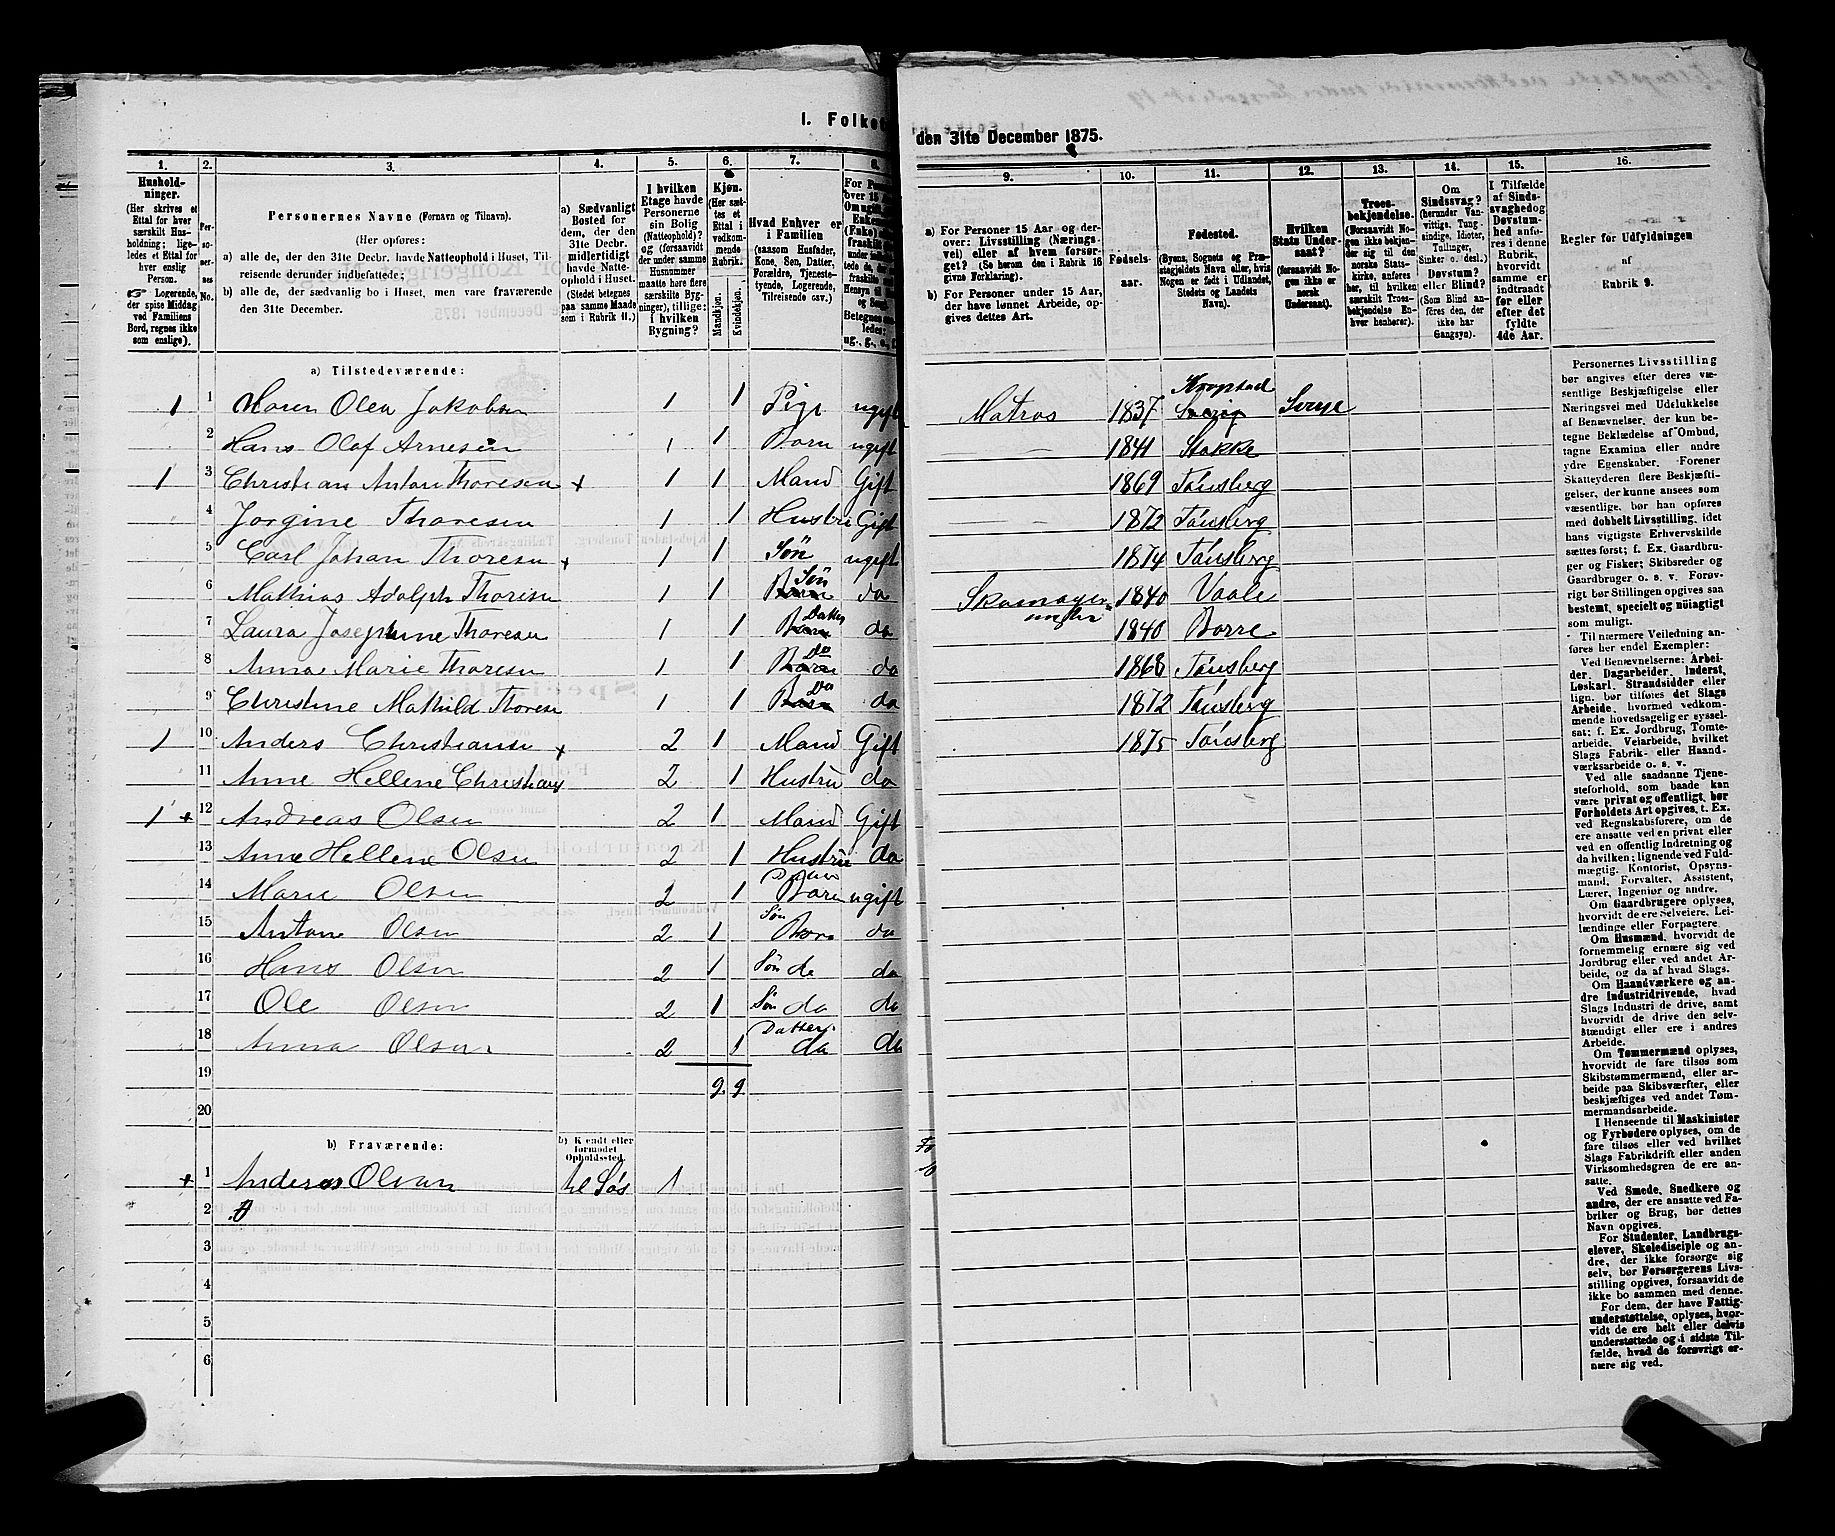 I. Folket
1. 2. 3. 4. 5. 6. 7. 8.
Hushold-
ninger.
(Her skrives et
Ettal for hver
særskilt Hus-
holdning; lige-
ledes et Ettal for
hver enslig
Person.
Logerende,
der spise Middag
ved Familiens
Bord, regnes ikke
som enslige).
Per-
so-
ner-
nes
No.
Personernes Navne (Fornavn og Tilnavn).
(Her opføres:
a) alle de, der den 31te Decbr. havde Natteophold i Huset, Til-
reisende derunder indbefattede;
b) alle de, der sædvanlig bo i Huset, men vare fraværende
den 31te December.
a) Sædvanligt
Bosted for
dem, der den
31te Decbr.
midlertidigt
havde Natte-
ophold i Huset.
(Stedet betegnes
paa samme Maade
som i Rubrik 11.)
I hvilken
Etage havde
Personerne
sin Bolig
(Natteophold)?
og (forsaavidt
der under samme
Husnummer
maatte høre flere
særskilte Byg-
ninger), tillige:
i hvilken
Bygning?
Kjøn.
(Her sæt-
tes et
Ettal i
vedkom-
mende
Rubrik.
Mandkjøn.
Kvindekjøn.
Hvad Enhver er
i Familien
(saasom Husfader,
Kone, Søn, Datter,
Forældre, Tjeneste-
tyende, Logerende,
Tilreisende osv.)
a) Tilstedeværende:
1 1 Maren Olea Jakobsen 1 1 Pige ugift
2 Hans Olaf Arnesen 1 1 Barn ugift
1 3 Christian Anton Thoresen + 1 1 Mand Gift
4 Jorgine Thoresen 1 1 Hustru Gift
5 Carl Johan Thoresen + 1 1 Søn ugift
6 Mathias Adolph Thoresen 1 1 Barn Søn do
7 Laura Josephine Thoresen 1 1 Barn Datter do
8 Anna Marie Thoresen 1 1 Barn Do do
9 Christine Mathild Thoresen 1 1 Barn Do do
1 10 Anders Christiansen + 2 1 Mand Gift
11 Anne Hellene Christians 2 1 Hustru do
1 + 12 Andreas Olsen 2 1 Mand Gift
13 Anne Hellene Olsen 2 1 Hustru do
14 Marie Olsen 2 1 Datter Barn ugift
15 Anton Olsen 2 1 Søn Barn do
16 Hans Olsen 2 1 Søn do do
17 Ole Olsen 2 1 Søn do do
18 Anna Olsen 2 1 Datter do do
19 9 9
20
b) Fraværende:
b) Kjendt eller
formodet
Opholdssted.
+ 1 Anderas Olsen til Søs 1
2
3
4
5
6
den 31te December 1875.
9. 10. 11. 12. 13. 14. 15. 16.
a) For Personer 15 Aar og der-
over: Livsstilling (Nærings-
vei) eller af hvem forsør-
get? (Se herom den i Rubrik 16
givne Forklaring).
b) For Personer under 15 Aar,
der have lønnet Arbeide, op-
gives dettes Art.
Fødsels-
aar.
Fødested.
(Byens, Sognets og Præ-
stegjeldets Navn eller, hvis
Nogen er født i Udlandet,
Stedets og Landets
Navn).
Hvilken
Stats Under-
saat?
(forsaavidt No-
gen ikke er
norsk
Undersaat).
Troes-
bekjendelse.
(Forsaavidt No-
gen ikke bekjen-
der sig til den
norske Stats-
kirke, anføres
til hvilket
særskilt Troes-
bekjendelse En-
hver henhører).
Om
Sindssvag?
(herunder Van-
vittige, Tung-
sindige, Idioter,
Tullinger,
Sinker o. desl.)
Døvstum?
eller Blind?
(Som Blind an-
føres den, der
ikke har
Gangsyn).
I Tilfælde
af Sinds-
svaghed og
Døvstum-
hed anfø-
res i denne
Rubrik,
hvorvidt
samme er
indtraadt
før eller
efter det
fyldte
4de Aar.
Regler for Udfyldningen
af
Rubrik 9.
Matros 1837 Kropstad Sverig Sverge
1841 Stokke
1869 Tønsberg
1872 Tønsberg
1874 Tønsberg
Skomager 1840 Vaale
1840 Borre
1868 Tønsberg
1872 Tønsberg
1875 Tønsberg
Personernes Livsstilling
bør angives efter deres væ-
sentlige Beskjæftigelse eller
Næringsvei med Udelukkelse
af Benævnelser, der kun be-
tegne Beklædelse af Ombud,
tagne Examina eller andre
ydre Egenskaber. Forener
Skatteyderen flere Beskjæfti-
gelser, der kunne ansees som
væsentlige, bør han opføres
med dobbelt Livsstilling, idet
hans vigtigste Erhvervskilde
sættes først; f. Ex. Gaardbru-
ger og Fisker; Skibsreder og
Gaardbruger o. s. v. Forøv-
rigt bør Stillingen opgives saa
bestemt, specielt og nøiagtigt
som muligt.
Til nærmere Veiledning an-
føres her endel Exempler:
Ved Benævnelserne: Arbei-
der, Dagarbeider, Inderst,
Løskarl, Strandsidder eller
lign. bør tilføres det Slags
Arbeide, hvormed vedkom-
mende hovedsagelig er syssel-
sat; f. Ex. Jordbrug, Tomte-
arbeide, Veiarbeide, hvilket
Slags Fabrik- eller Haand-
værksarbeide o. s. v.
Ved alle saadanne Tjene-
steforhold, som baade kan
være privat og offentligt, bør
Forholdets Art opgives, t. Ex.
ved Regnskabsførere, om de
ere ansatte ved en privat eller
ved en offentlig Indretning og
da hvilken; lignende ved Fuld-
mægtig, Kontorist, Opsyns-
mand, Forvalter, Assistent,
Lærer, Ingeniør og andre.
Om Gaardbrugere oplyses,
hvorvidt de ere Selveiere, Lei-
lændinge eller Forpagtere.
Om Husmænd, hvorvidt de
fornemmelig ernære sig ved
Jordbrug eller ved andet Ar-
beide, og da af hvad Slags.
Om Haandværkere og an-
dre Industridrivende, hvad
Slags Industri de drive, samt
hvorvidt de drive den selv-
stændigt eller ere i andres
Arbeide.
Om Tømmermænd oplyses,
hvorvidt de fare tilsøs som
Skibstømmermænd, eller ar-
beide paa Skibsværfter, eller
beskjæftiges ved andet Tøm-
mermandsarbeide.
I Henseende til Maskinister
og Fyrbødere oplyses, om de
fare tilsøs eller ved hvilket
Slags Fabrikdrift eller anden
Virksomhedsgren de ere an-
satte.
Ved Smede, Snedkere og
andre, der ere ansatte ved Fa-
briker og Brug, bør dettes
Navn opgives.
For Studenter, Landbrugs-
elever, Skoledisciple og an-
dre, der ikke forsørge sig
selv, bør Forsørgerens Livs-
stilling opgives, forsaavidt de
ikke bo sammen med denne.
For dem, der have Fattig-
understøttelse, oplyses, hvor-
vidt de ere helt eller delvis
understøttede og i sidste Til-
fælde, hvad de forøvrigt er-
nære sig ved.